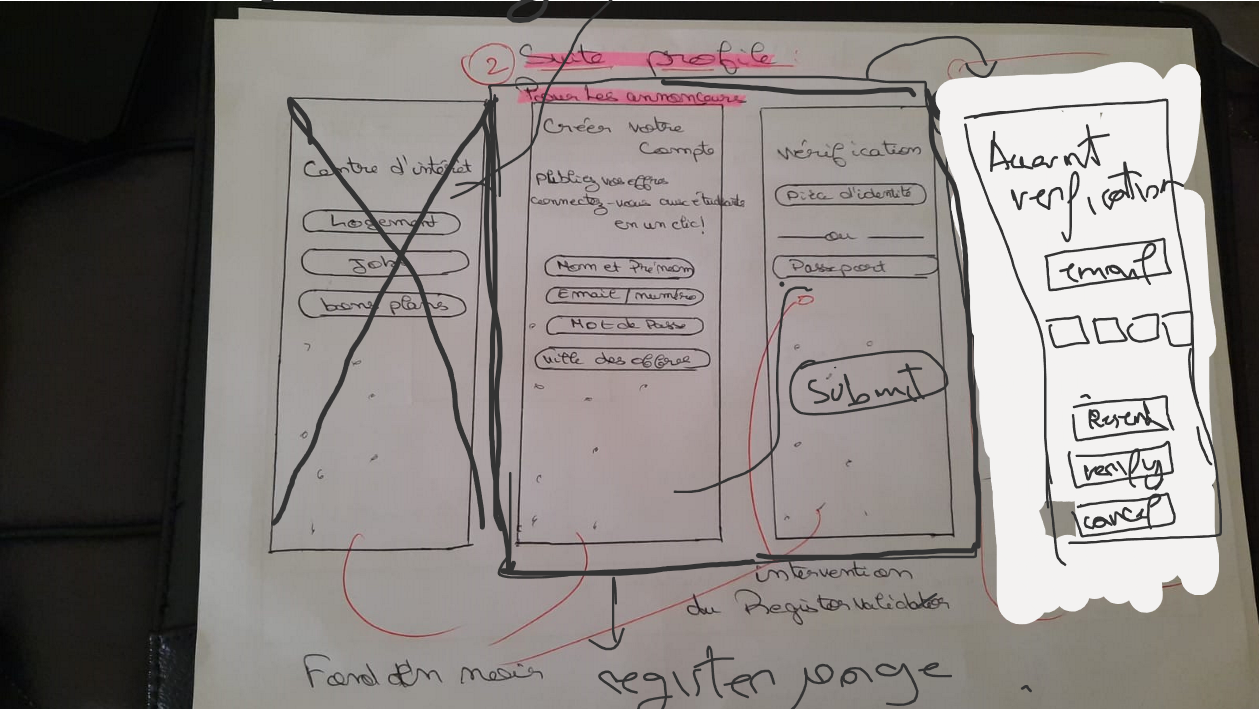 2 Suite profile :
Pour Les annonceurs
Centre d'intérêt
Logement
Job
bons plans
Créer votre
Compte
Publiez vos offres
connectez-vous aux étudiants
en un clic!
Nom et Prénom
Email / numéro
Mot de Passe
Ville des offres
vérification
Pièce d'identité
ou
Passeport
Submit
Account
verification
email
Resend
verify
cancel
intervention
du Register validator
Fond En noir
register page